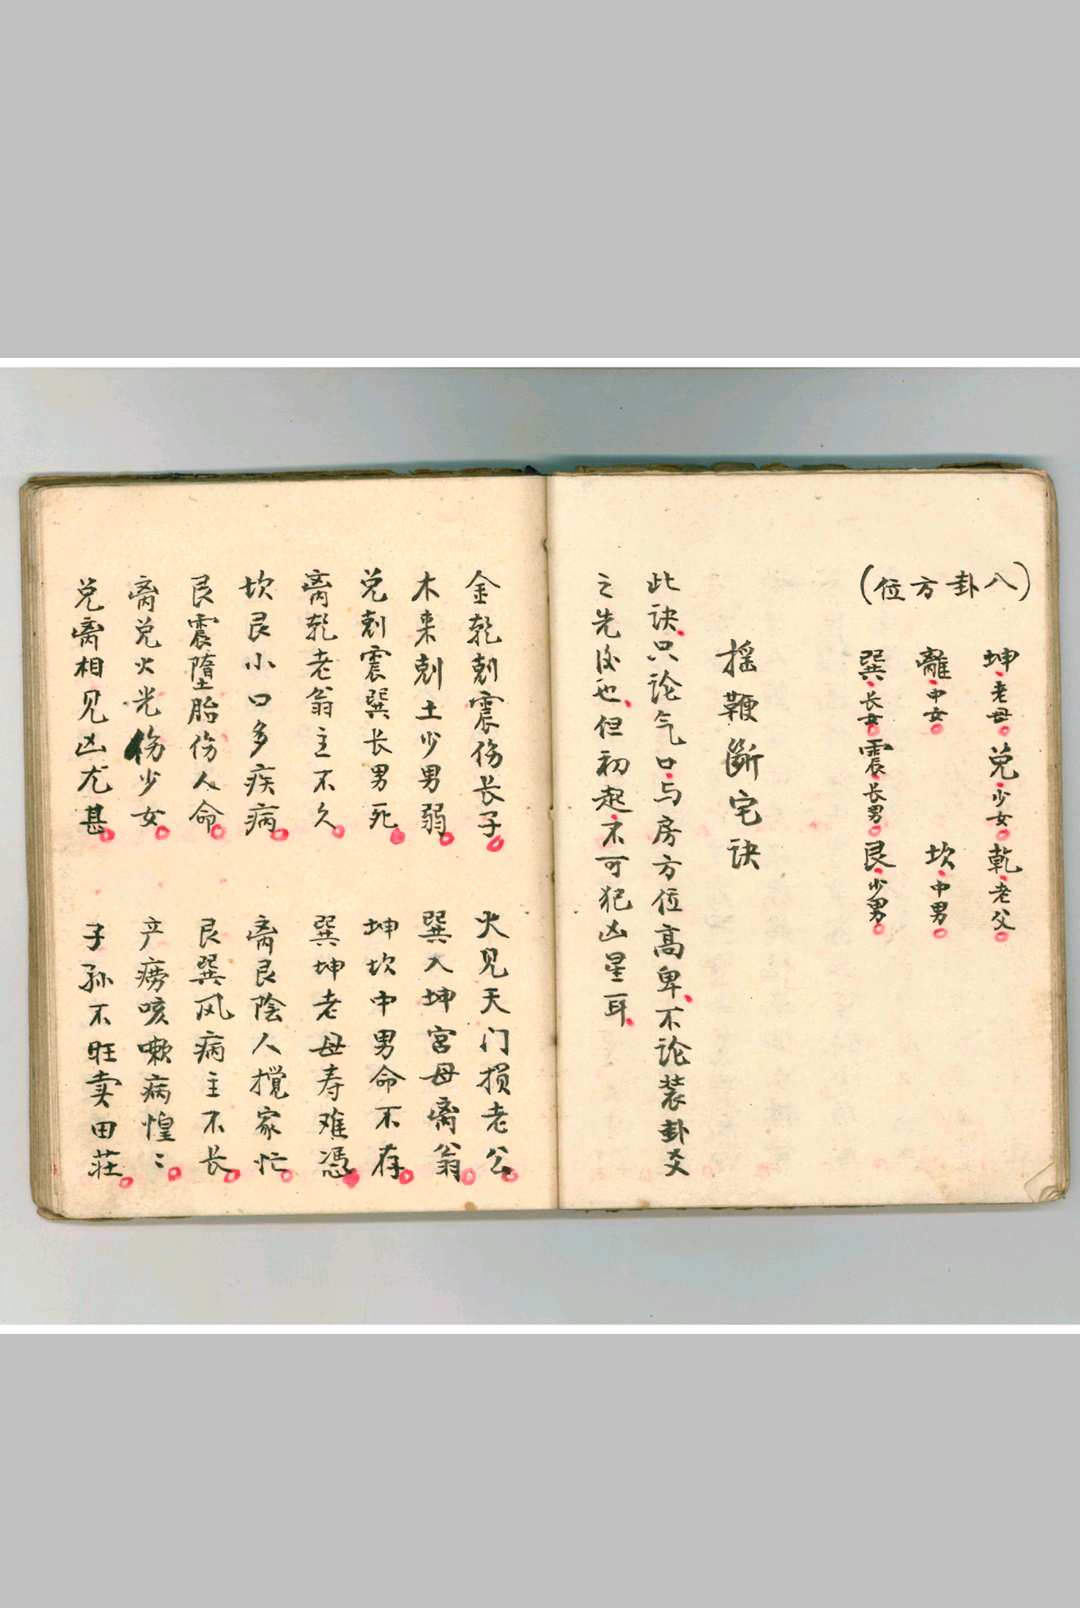 (八卦方位)
坤、老母。兑、少女。乾、老父。
離、中女。坎、中男。
巽、长女。震、长男。艮、少男。
摇鞭斷宅诀
此诀、只论气口与房方位高卑、不论装卦爻
之先后也、但初起不可犯凶星耳、
金乾剋震伤长子。火见天门损老公。
木来剋土少男弱。巽入坤宫母离翁。
兑剋震巽长男死。坤坎中男命不存。
离乾老翁主不久。巽坤老母寿难憑。
坎艮小口多疾病。离艮陰人搅家忙。
艮震墮胎伤人命。艮巽风病主不长。
离兑火光伤少女。产痨咳嗽病惶〻。
兑离相见凶尤甚。子孙不旺卖田莊。